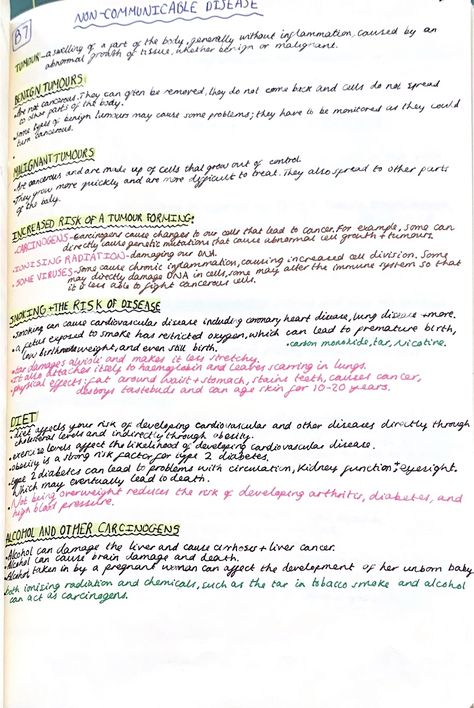 B7
NON-COMMUNICABLE DISEASE
TUMOUR - a swelling of a part of the body, generally without inflammation, caused by an
abnormal growth of tissue, whether benign or malignant.
BENIGN TUMOURS
• Are not cancerous. They can often be removed, they do not come back and cells do not spread
to other parts of the body.
• Some types of benign tumours may cause some problems; they have to be monitored as they could
turn cancerous.
MALIGNANT TUMOURS
• Are cancerous and are made up of cells that grow out of control
• They grow more quickly and are more difficult to treat. They also spread to other parts
of the body.
INCREASED RISK OF A TUMOUR FORMING:
• CARCINOGENS - Carcinogens cause changes to our cells that lead to cancer. For example, some can
directly cause genetic mutations that cause abnormal cell growth + tumours.
• IONISING RADIATION - damaging our DNA.
• SOME VIRUSES - Some cause chronic inflammation, causing increased cell division. Some
may directly damage DNA in cells, some may alter the immune system so that
it is less able to fight cancerous cells.
SMOKING + THE RISK OF DISEASE
• Smoking can cause cardiovascular disease including coronary heart disease, lung disease + more.
• A fetus exposed to smoke has restricted oxygen, which can lead to premature birth,
low birthweight, and even still birth.
• carbon monoxide, tar, nicotine.
• tar damages alveoli and makes it less stretchy.
• It also attaches itself to haemoglobin and leaves scarring in lungs.
• physical effects: fat around waist + stomach, stains teeth, causes cancer,
destroys tastebuds and can age skin for 10-20 years.
DIET
• diet affects your risk of developing cardiovascular and other diseases directly through
cholesterol levels and indirectly through obesity.
• exercise levels affect the likelihood of developing cardiovascular disease.
• obesity is a strong risk factor for type 2 diabetes.
• type 2 diabetes can lead to problems with circulation, kidney function + eyesight.
which may eventually lead to death.
• Not being overweight reduces the risk of developing arthritis, diabetes, and
high blood pressure.
ALCOHOL AND OTHER CARCINOGENS
• Alcohol can damage the liver and cause cirrhosis + liver cancer.
• Alcohol can cause brain damage and death.
• Alcohol taken in by a pregnant woman can affect the development of her unborn baby
both ionising radiation and chemicals, such as the tar in tobacco smoke and alcohol
can act as carcinogens.